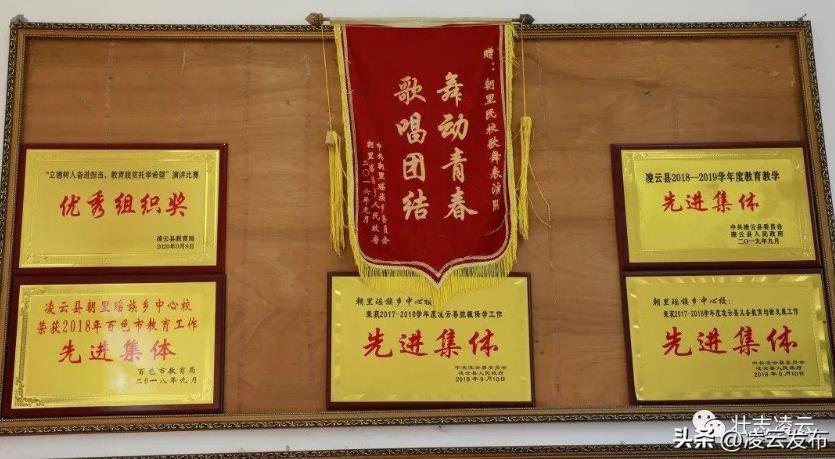 赠：朝里民校歌舞表演队
舞动青春
歌唱团结
中共朝里瑶族乡委员会
朝里瑶族乡人民政府
二〇一六年九月
“立德树人奋进担当、教育脱贫托举希望”演讲比赛
优秀组织奖
凌云县教育局
凌云县2018—2019学年度教育教学
先进集体
中共凌云县委员会
凌云县人民政府
二〇一九年九月
凌云县朝里瑶族乡中心校
荣获2018年百色市教育工作
先进集体
百色市教育局
二〇一八年九月
朝里瑶族乡中心校：
荣获2017-2018学年度凌云县控辍保学工作
先进集体
中共凌云县委员会
凌云县人民政府
2018年9月10日
朝里瑶族乡中心校：
荣获2017-2018学年度凌云县义务教育均衡发展工作
先进集体
中共凌云县委员会
凌云县人民政府
2018年9月10日
壮志凌云
头条@凌云发布